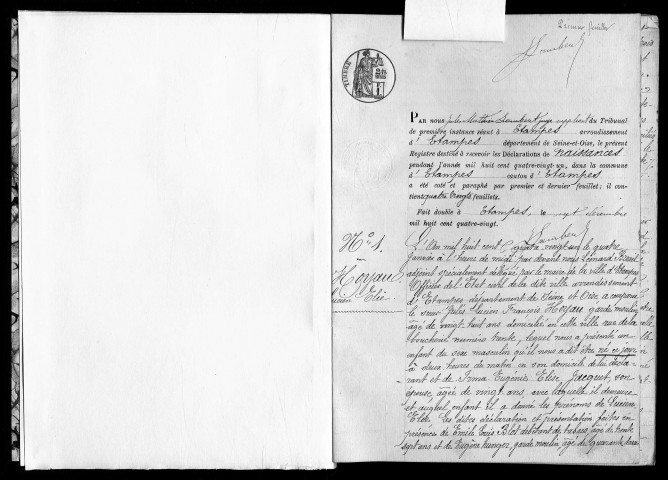 Premier feuillet
TIMBRE
PAR NOUS Jules Mathieu juge suppléant du Tribunal
de première instance séant à Etampes arrondissement
d'Etampes département de Seine-et-Oise, le présent
Registre destiné à recevoir les Déclarations de Naissances
pendant l'année mil huit cent quatre-vingt-un, dans la commune
d'Etampes canton d'Etampes
a été coté et paraphé par premier et dernier feuillet; il con-
tient quatre vingts feuillets.
Fait double à Etampes, le sept décembre
mil huit cent quatre-vingt.
N° 1.
Hoyau
Lucien Elie
L'An mil huit cent quatre vingt un le quatre
Janvier à l'heure de midi par devant nous Léonard
adjoint spécialement délégué par le maire de la ville d'Etampes
Officier de l'Etat civil de la dite ville arrondissement
d'Etampes département de Seine et Oise, a comparu
le sieur Jules Lucien François Hoyau garde moulin
âgé de vingt huit ans domicilié en cette ville rue de la
boucherie numéro trente, lequel nous a présenté un
enfant du sexe masculin qu'il nous a dit être né ce jour
à deux heures du matin, en son domicile de lui décla
rant et de Irma Eugénie Elise Jacquet, son
épouse, âgée de vingt ans, avec laquelle il demeure
et auquel enfant il a donné les prénoms de Lucien
Elie. Les dites déclaration et présentation faites en
présence de Emile Louis Blot débitant de tabacs, âgé de trente
sept ans et de Eugène garde moulin, âgé de quarante deux